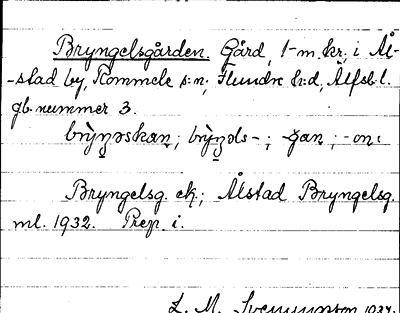 Bryngelsgården. Gård, 1-m. kr. i Ål-
-stad by, Rommele s:n; Flundre h:d, Älfsb. l.
gb. nummer 3.
brỳŋəskan; brỳŋəls-; -gan; -on:
Bryngelsg. ek; Ålstad Bryngelsg.
ml. 1932. Prep. i.
L. M. Svenungsson 1934.